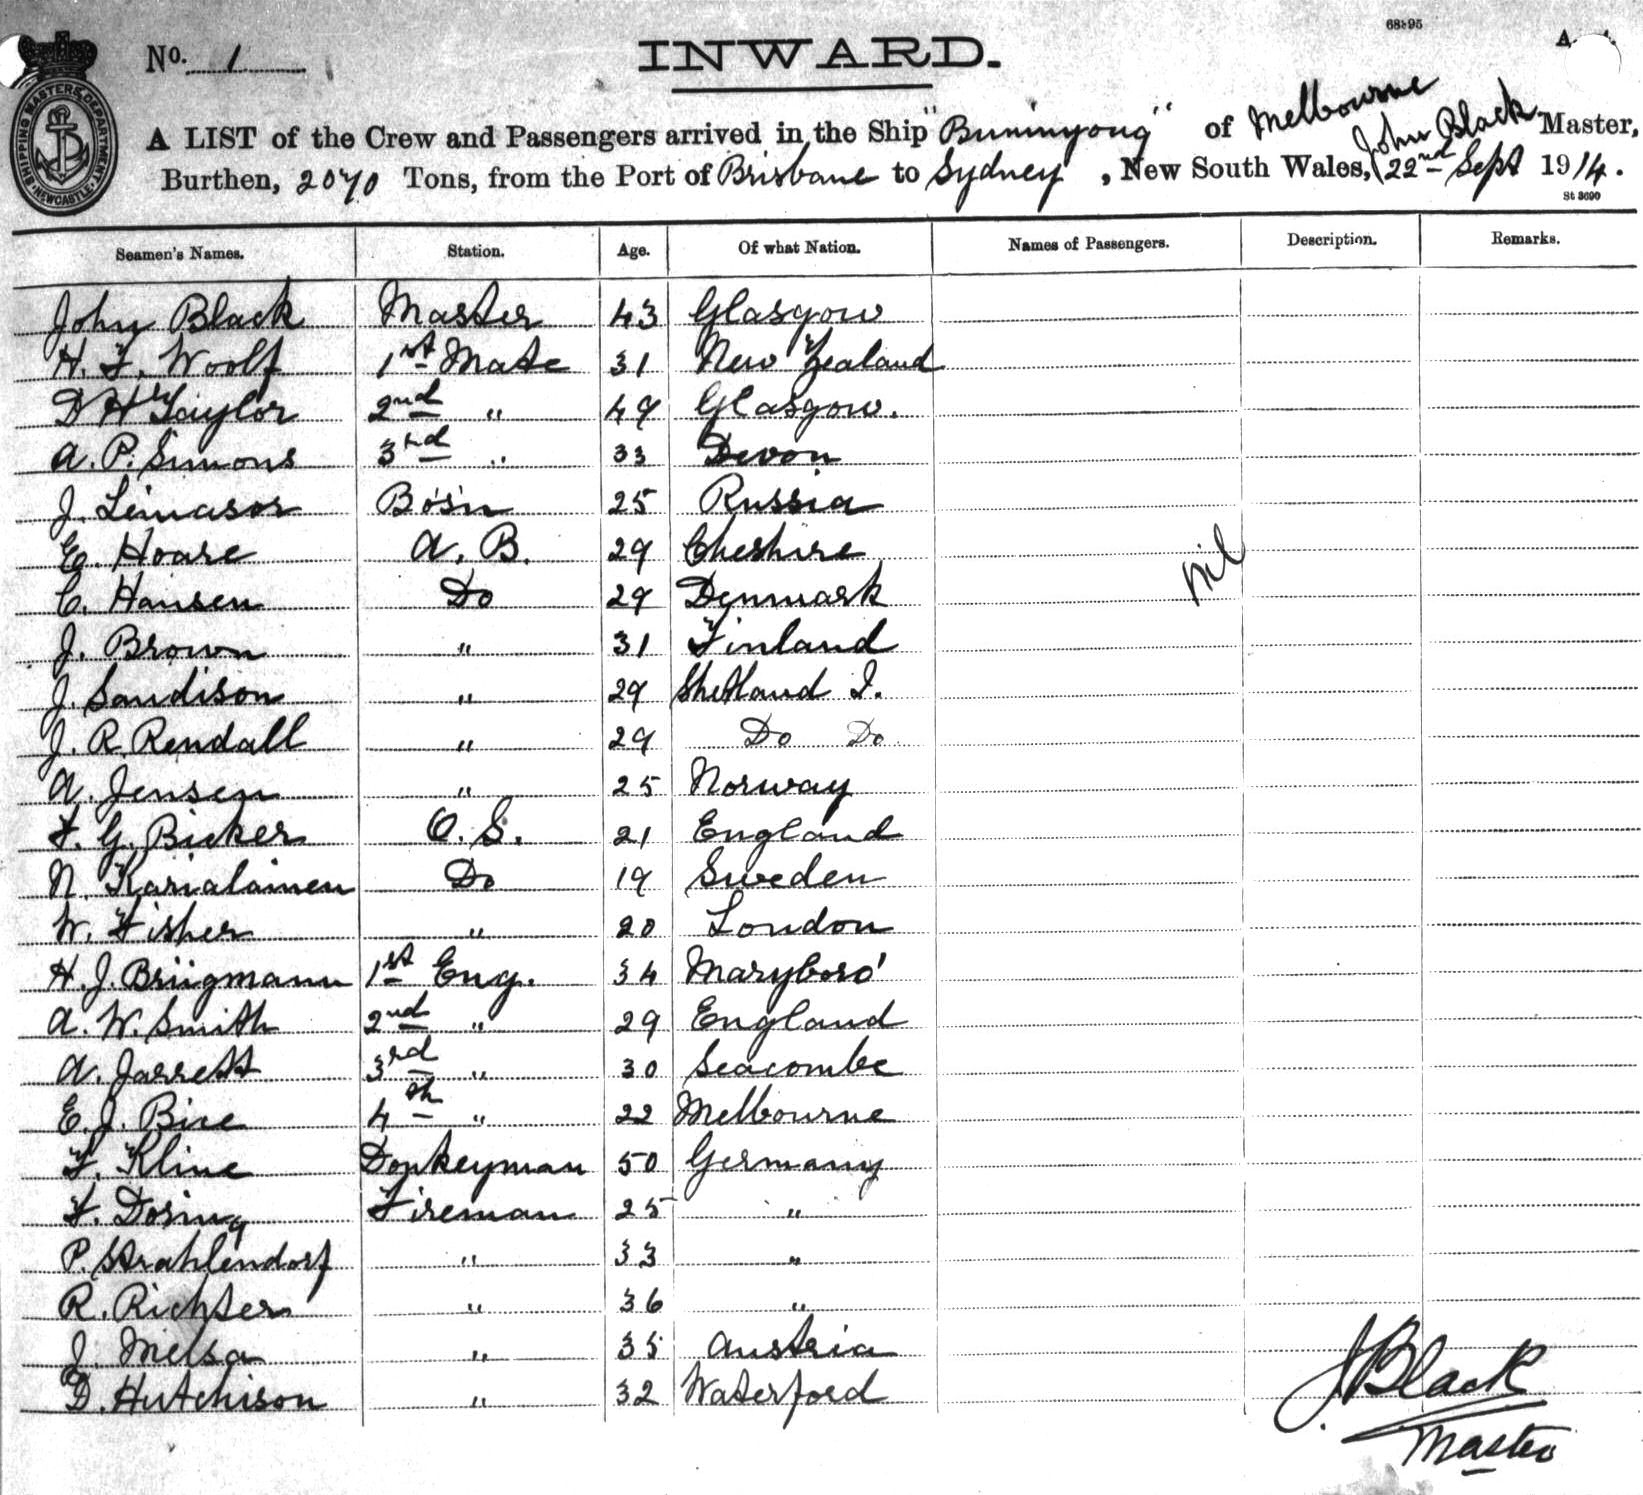 68895
No. 1
INWARD.
SHIPPING MASTERS DEPARTMENT NEWCASTLE
A LIST of the Crew and Passengers arrived in the Ship "Buninyong" of Melbourne John Black Master,
Burthen, 2070 Tons, from the Port of Brisbane to Sydney, New South Wales, 22nd Sept 1914.
St 3690
Seamen's Names. Station. Age. Of what Nation. Names of Passengers. Description. Remarks.
John Black Master 43 Glasgow
H. F. Woolf 1st Mate 31 New Zealand
D H Taylor 2nd " 49 Glasgow.
A. P. Simons 3rd " 33 Devon
J. Limasor Bos'n 25 Russia
E. Hoare A. B. 29 Cheshire
nil
C. Hansen Do 29 Denmark
J. Brown " 31 Finland
J. Sandison " 29 Shetland I.
J. R. Rendall " 29 Do Do
A. Jensen " 25 Norway
F. G. Bicker O. S. 21 England
N. Karialainen Do 19 Sweden
W. Fisher " 20 London
H. J. Brügmann 1st Eng. 34 Maryboro'
A. W. Smith 2nd " 29 England
A. Jarrett 3rd " 30 Seacombe
E. J. Bice 4th " 22 Melbourne
F. Kline Donkeyman 50 Germany
F. Doring Fireman 25 "
P. Strahlendorf " 33 "
R. Richter " 36 "
J. Melsa " 35 Austria
D. Hutchison " 32 Waterford
J Black
Master